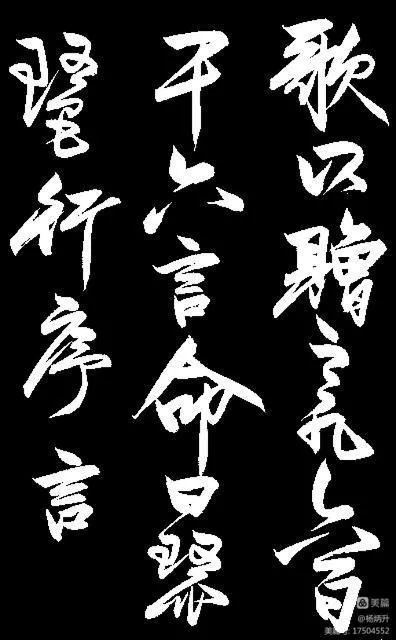 歌以贈之凡六百
一十六言命曰琵
琶行序言
美篇
@杨炳升
美篇号 17504552